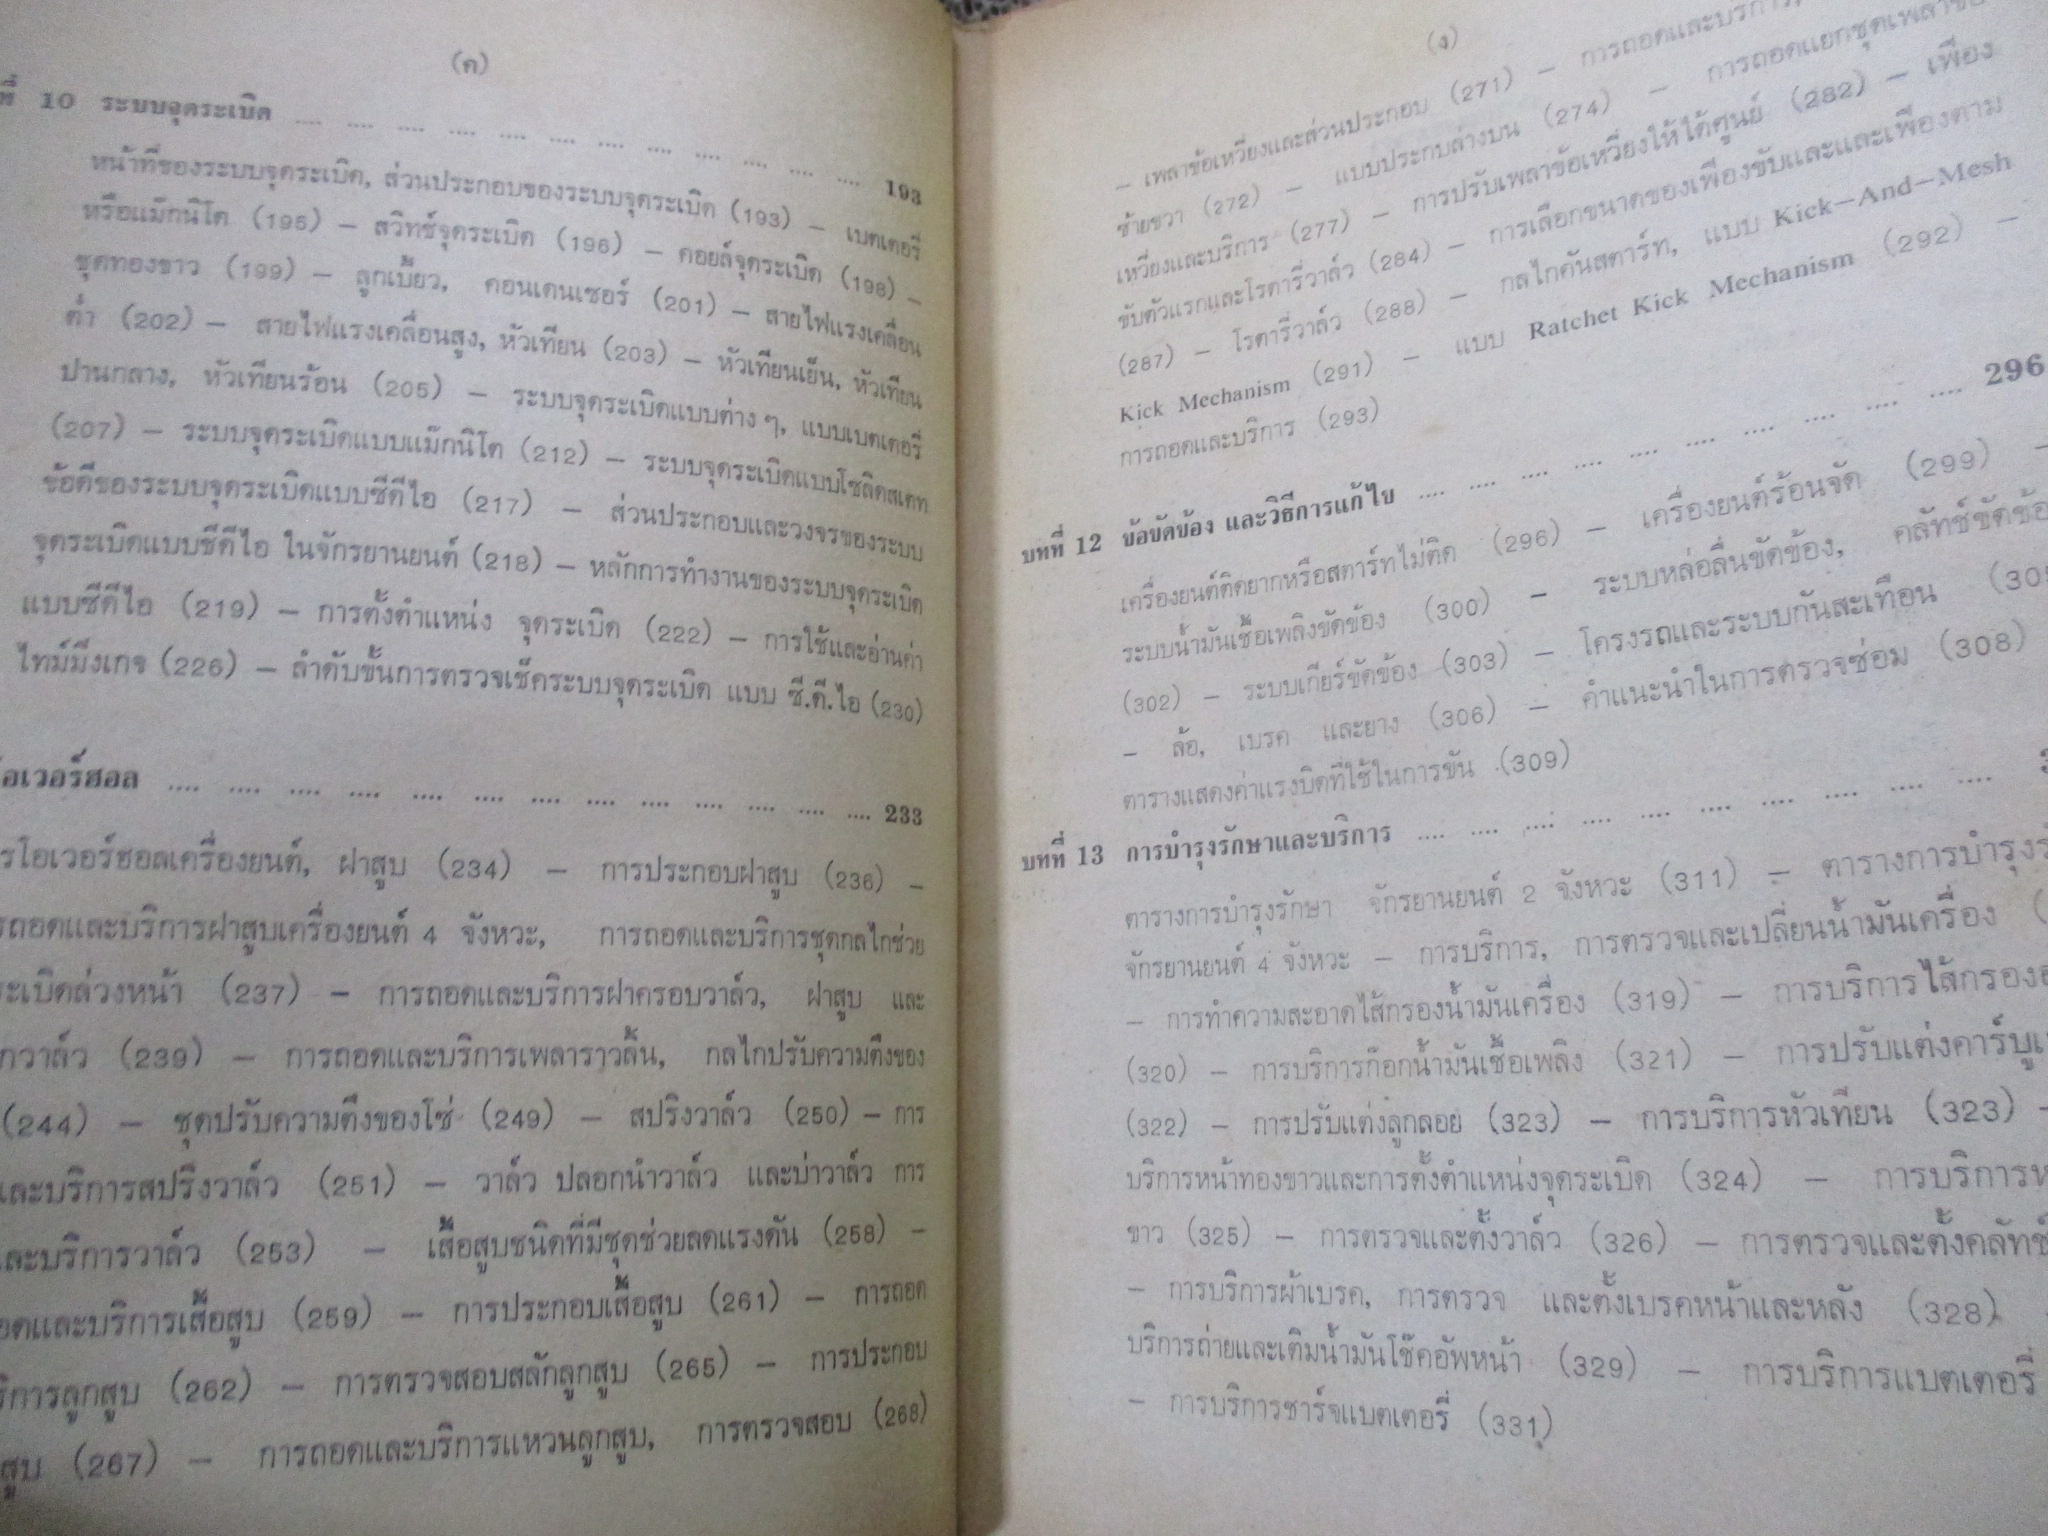 (ค)
ที่ 10 ระบบจุดระเบิด .... .... .... .... .... .... .... .... .... .... .... .... 193
หน้าที่ของระบบจุดระเบิด, ส่วนประกอบของระบบจุดระเบิด (193) – เบตเตอรี่
หรือแม๊กนิโต (195) – สวิทช์จุดระเบิด (196) – คอยล์จุดระเบิด (198) –
ชุดทองขาว (199) – ลูกเบี้ยว, คอนเดนเซอร์ (201) – สายไฟแรงเคลื่อน
ต่ำ (202) – สายไฟแรงเคลื่อนสูง, หัวเทียน (203) – หัวเทียนเย็น, หัวเทียน
ปานกลาง, หัวเทียนร้อน (205) – ระบบจุดระเบิดแบบต่าง ๆ, แบบเบตเตอรี่
(207) – ระบบจุดระเบิดแบบแม๊กนิโต (212) – ระบบจุดระเบิดแบบโซลิดสเตท
ข้อดีของระบบจุดระเบิดแบบซีดีไอ (217) – ส่วนประกอบและวงจรของระบบ
จุดระเบิดแบบซีดีไอ ในจักรยานยนต์ (218) – หลักการทำงานของระบบจุดระเบิด
แบบซีดีไอ (219) – การตั้งตำแหน่ง จุดระเบิด (222) – การใช้และอ่านค่า
ไทม์มิ่งเกจ (226) – ลำดับขั้นการตรวจเช็คระบบจุดระเบิด แบบ ซี.ดี.ไอ (230)
โอเวอร์ฮอล .... .... .... .... .... .... .... .... .... .... .... .... 233
รโอเวอร์ฮอลเครื่องยนต์, ฝาสูบ (234) – การประกอบฝาสูบ (236) –
รถอดและบริการฝาสูบเครื่องยนต์ 4 จังหวะ, การถอดและบริการชุดกลไกช่วย
ระเบิดล่วงหน้า (237) – การถอดและบริการฝาครอบวาล์ว, ฝาสูบ และ
กวาล์ว (239) – การถอดและบริการเพลาราวลิ้น, กลไกปรับความตึงของ
(244) – ชุดปรับความตึงของโซ่ (249) – สปริงวาล์ว (250) – การ
และบริการสปริงวาล์ว (251) – วาล์ว ปลอกนำวาล์ว และบ่าวาล์ว การ
และบริการวาล์ว (253) – เสื้อสูบชนิดที่มีชุดช่วยลดแรงดัน (258) –
อดและบริการเสื้อสูบ (259) – การประกอบเสื้อสูบ (261) – การถอด
ริการลูกสูบ (262) – การตรวจสอบสลักลูกสูบ (265) – การประกอบ
สูบ (267) – การถอดและบริการแหวนลูกสูบ, การตรวจสอบ (268)
(ง)
– เพลาข้อเหวี่ยงและส่วนประกอบ (271) – การถอดและบริการ,
ซ้ายขวา (272) – แบบประกบล่างบน (274) – การถอดแยกชุดเพลาข้อ
เหวี่ยงและบริการ (277) – การปรับเพลาข้อเหวี่ยงให้ได้ศูนย์ (282) – เฟือง
ขับตัวแรกและโรตารี่วาล์ว (284) – การเลือกขนาดของเฟืองขับและและเฟืองตาม
(287) – โรตารี่วาล์ว (288) – กลไกคันสตาร์ท, แบบ Kick–And–Mesh
Kick Mechanism (291) – แบบ Ratchet Kick Mechanism (292) –
การถอดและบริการ (293)
บทที่ 12 ข้อขัดข้อง และวิธีการแก้ไข .... .... .... .... .... .... .... .... .... .... 296
เครื่องยนต์ติดยากหรือสตาร์ทไม่ติด (296) – เครื่องยนต์ร้อนจัด (299) –
ระบบน้ำมันเชื้อเพลิงขัดข้อง (300) – ระบบหล่อลื่นขัดข้อง, คลัทช์ขัดข้อ
(302) – ระบบเกียร์ขัดข้อง (303) – โครงรถและระบบกันสะเทือน (30
– ล้อ, เบรค และยาง (306) – คำแนะนำในการตรวจซ่อม (308)
ตารางแสดงค่าแรงบิดที่ใช้ในการขัน (309)
บทที่ 13 การบำรุงรักษาและบริการ .... .... .... .... .... .... .... .... .... .... .... 3
ตารางการบำรุงรักษา จักรยานยนต์ 2 จังหวะ (311) – ตารางการบำรุงรั
จักรยานยนต์ 4 จังหวะ – การบริการ, การตรวจและเปลี่ยนน้ำมันเครื่อง (
– การทำความสะอาดไส้กรองน้ำมันเครื่อง (319) – การบริการไส้กรองอ
(320) – การบริการก๊อกน้ำมันเชื้อเพลิง (321) – การปรับแต่งคาร์บูเ
(322) – การปรับแต่งลูกลอย (323) – การบริการหัวเทียน (323) –
บริการหน้าทองขาวและการตั้งตำแหน่งจุดระเบิด (324) – การบริการท
ขาว (325) – การตรวจและตั้งวาล์ว (326) – การตรวจและตั้งคลัทช์
– การบริการผ้าเบรค, การตรวจ และตั้งเบรคหน้าและหลัง (328)
บริการถ่ายและเติมน้ำมันโช๊คอัพหน้า (329) – การบริการแบตเตอรี่
– การบริการชาร์จแบตเตอรี่ (331)